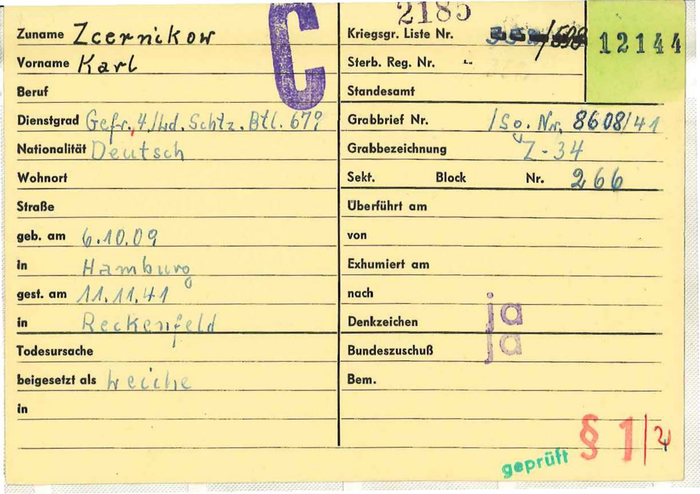 2185
C
Zuname Zcernikow
Vorname Karl
Beruf
Dienstgrad Gefr. 4/Ld. Schtz. Btl. 679
Nationalität Deutsch
Wohnort
Straße
geb. am 6.10.09
in Hamburg
gest. am 11.11.41
in Reckenfeld
Todesursache
beigesetzt als Leiche
in
Kriegsgr. Liste Nr.
12144
Sterb. Reg. Nr.
Standesamt
Grabbrief Nr. /So. Nr. 8608/41
Grabbezeichnung Z-34
Sekt. Block Nr. 266
Überführt am
von
Exhumiert am
nach
Denkzeichen ja
Bundeszuschuß ja
Bem.
geprüft
§ 1/